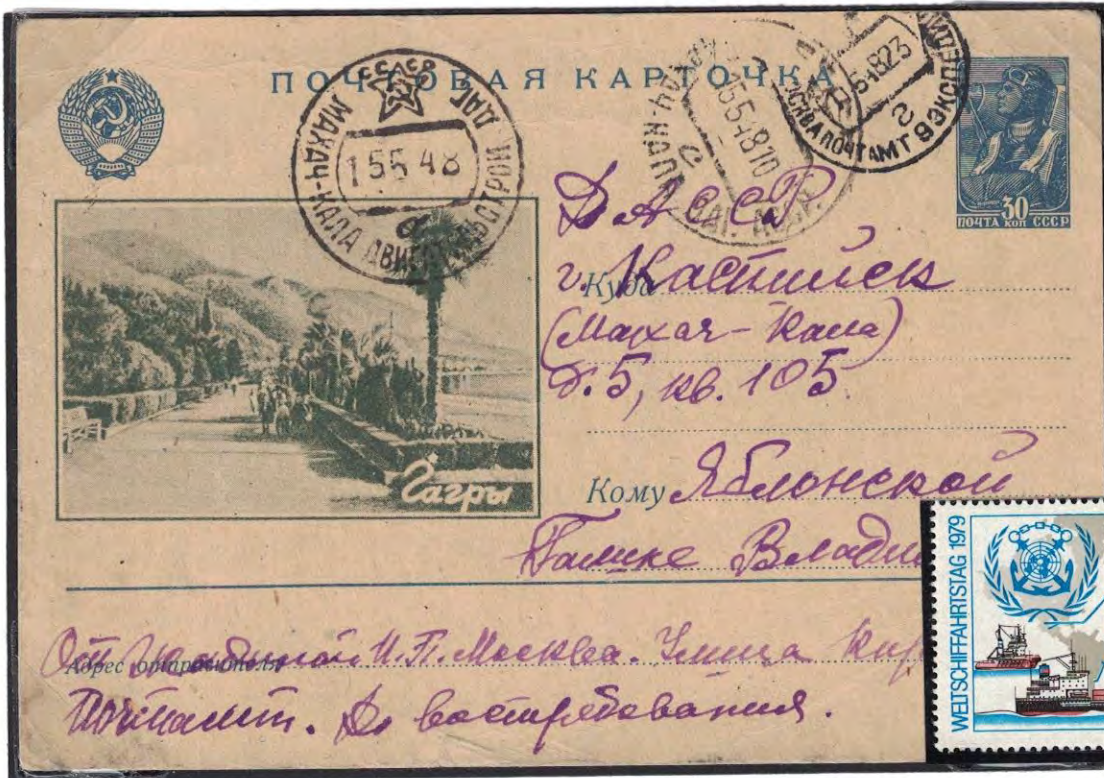 ПОЧТОВАЯ КАРТОЧКА
СССР
МАХАЧ-КАЛА ДВИГАТЕЛЬСТРОЙ ДАГ
15 5 48
б
МАХАЧ-КАЛА ДАГ.
15.5.48.10
МОСКВА ПОЧТАМТ 9 ЭКСПЕДИЦ
5.4823
2
30
ПОЧТА коп СССР
ДАССР
Куда г. Каспийск
(Махач-Кала)
д. 5, кв. 105.
Гагры
Кому Яблонской
Галине Влади
Адрес отправителя
От И. П. Москва. Улица Кир
Почтамт. До востребования.
WELTSCHIFFAHRTSTAG 1979